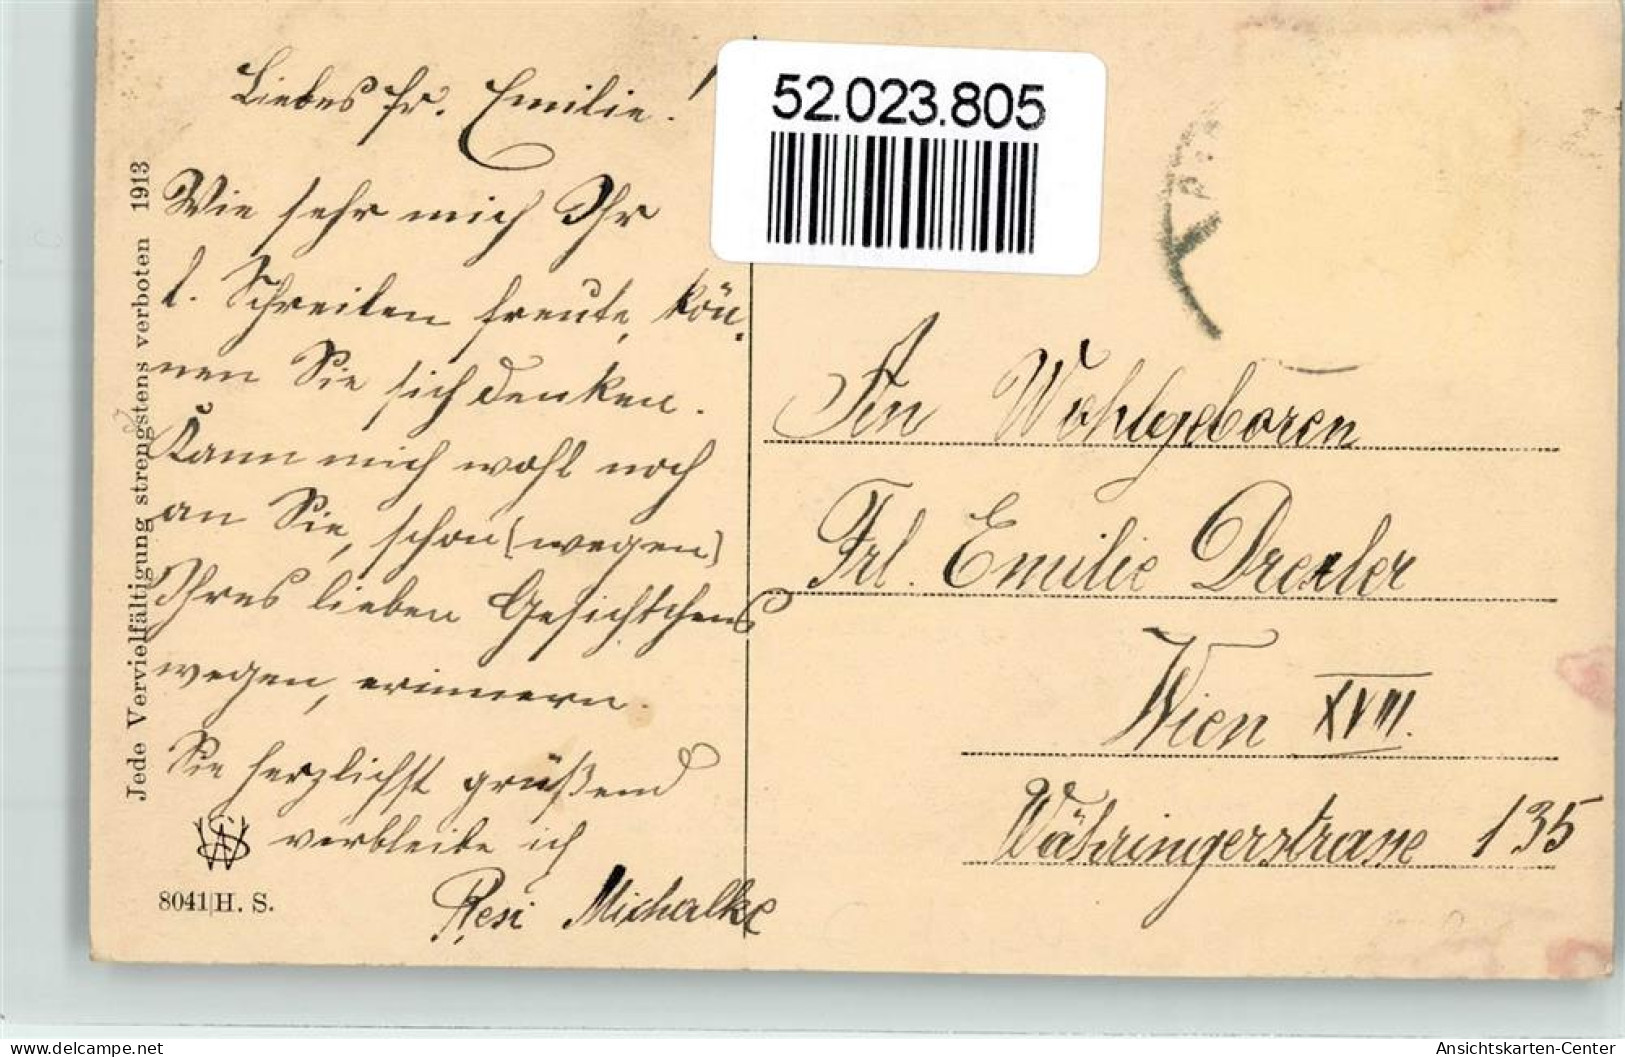 52.023.805
Liebes Fr. Emilie!
Wie sehr mich Ihr
l. Schreiben freute, kön-
nen Sie sich denken.
Kann mich wohl noch
an Sie, schon (wegen)
Ihres lieben Gesichtchens
wegen, erinnern.
Sie herzlichst grüßend
verbleibe ich
Resi Michalke
An Wohlgeboren
Frl. Emilie Drexler
Wien XVIII.
Währingerstrasse 135
Jede Vervielfältigung strengstens verboten 1913
8041 H. S.
delcampe.net
Ansichtskarten-Center